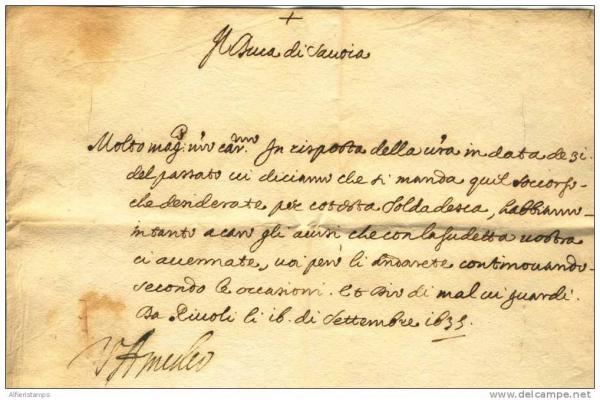 Il Duca di Savoia
Molto mag.co n'ro car.mo In risposta della v'ra in data de 31
del passato vi diciamo che si manda quel soccorso
che desiderate per cotesta soldadesca, habbiamo
intanto a caro gli avisi che con la sudetta vostra
ci accennate, voi però li andarete continouando
secondo le occasioni. Et Dio di mal vi guardi.
Da Rivoli li 16. di Settembre 1635.
V Amedeo
Alferistamps
delcampe.net